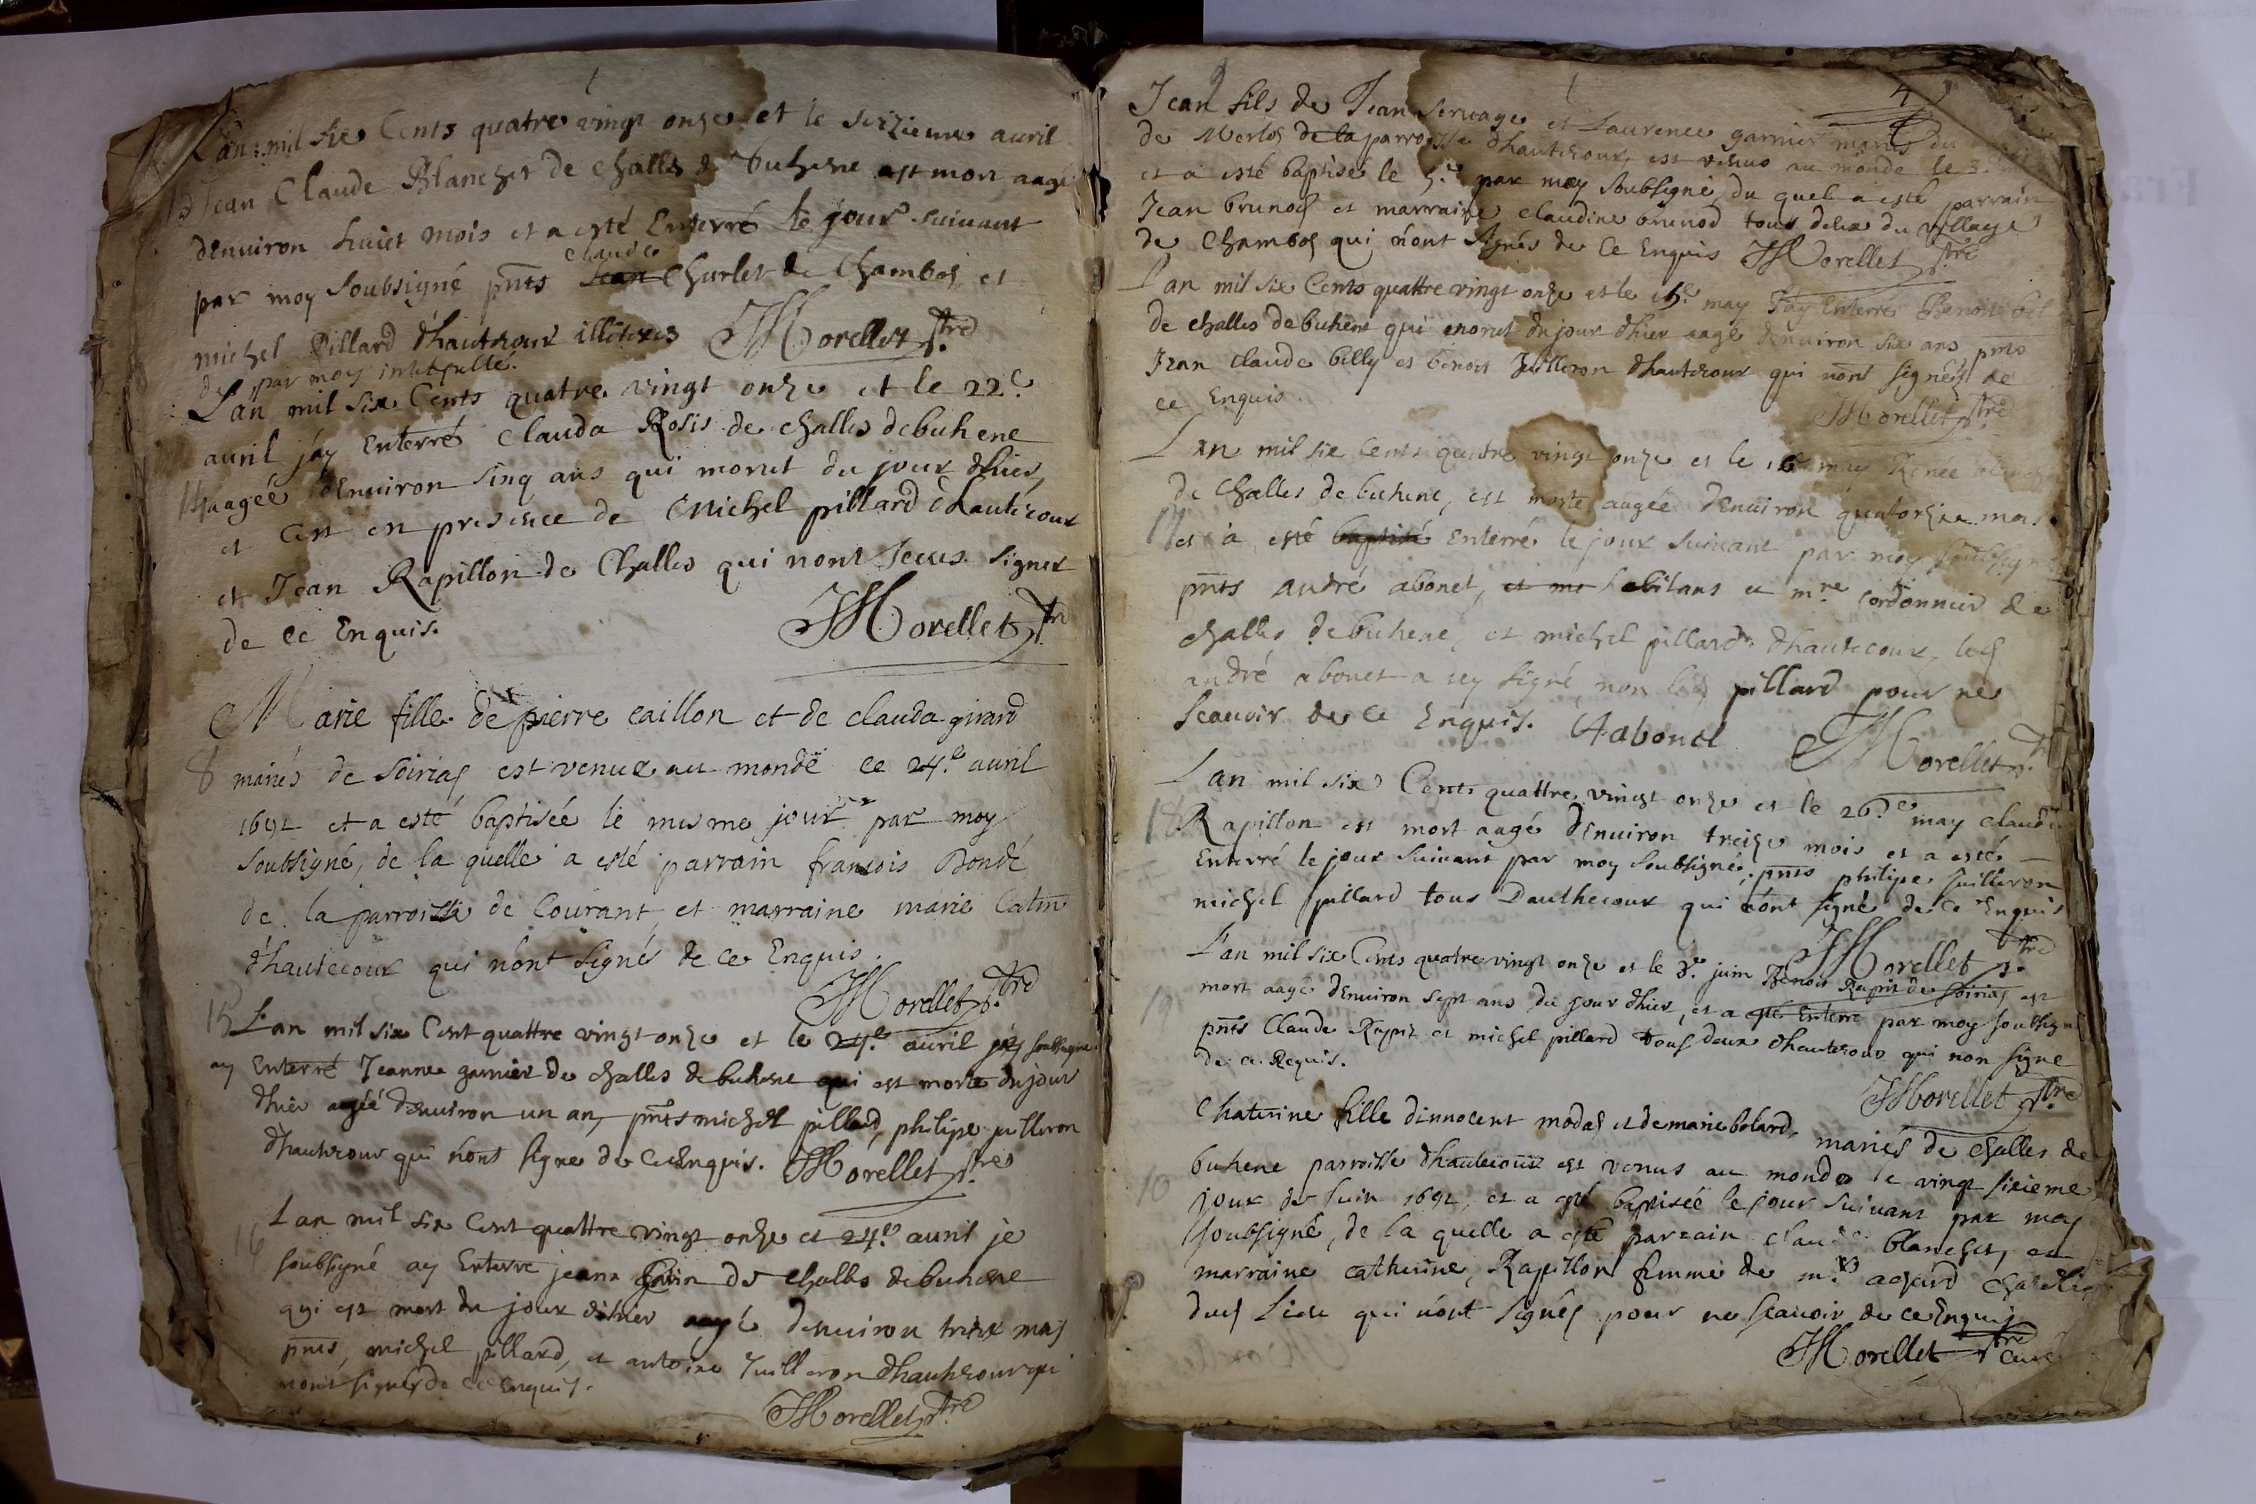 L'an mil six Cents quatre vingt onze et le seizieme auril
13 Jean Claude Blanchet de challes de buhene est mort aagé
d'enuiron huict mois et a esté Enterré le jour suiuant
claude
par moy soubsigné pnts Jean Churlet de Chambos, et
michel Pillard d'hautecour illiteres JMorellet ptre
de par moy interpellé.
L'an mil six Cents quatre vingt onze et le 22.e
auril j'ay Enterré Clauda Rosis de challes de buhene
14 aagée d'Enuiron sinq ans qui morut du jour d'hier,
et C'est en presence de Michel pillard d'hautecour
et Jean Rapillon de Challes qui n'ont sceus signer
de ce Enquis. JMorellet ptre
Marie fille de pierre caillon et de clauda girard
8 mariés de soirias est venue au monde ce 24.e auril
1691 et a esté baptisée le mesme jour par moy
soubsigné, de la quelle a esté parrain francois Bondé
de la parroisse de Courant et marraine marie Catin
d'hautecour qui n'ont signés de ce Enquis.
JMorellet ptre
15 L'an mil six Cent quattre vingt onze et le 24.e auril je soubsigne
ay Enterré Jeanne garnier de challes de buhene qui est morte du jour
d'hier agéé d'enuiron un an, pnts michel pillard, philipe juilleron
d'hautecour qui n'ont signe de ce Enquis. JMorellet ptre
16 L'an mil six Cent quattre vingt onze et 24.e auril je
soubsigné ay Enterre jean de challes de buhene
qui est mort du jour d'hier aagé d'enuiron treize mois
pnts, michel pillard, et antoine Juilleron d'hautecour qui
n'ont signer de ce Enquis.
JMorellet ptre
4
Jean fils de Jean seruage et Laurence garnier mariés du
de Merlos de la parroisse d'hautecour, est venus au monde le 3.e
et a esté baptisé le 5.e par moy soubsigné, du quel a esté parrain
Jean brunod et marraine claudine brunod tous deux du village
de Chambos qui n'ont signés de ce Enquis JMorellet ptre
L'an mil six Cents quattre vingt onze et le 15.e may J'ay Enterré Benoit
de challes de buhene qui morut du jour d'hier aagé d'enuiron six ans, pnts
Jean claude billy et benoit Juilleron d'hautecour qui n'ont signés de
ce Enquis.
JMorellet ptre
L'an mil six Cents quatre vingt onze et le may Renée
de Challes de buhene, est morte aagée d'Enuiron quatorze mois
17 et à esté baptisé Enterré le jour suiuant par moy soubsigné
pnts andré abonet, et me habitans et m.re cordonnier de
challes de buhene, et michel pillard d'hautecour, led
andré abonet a icy signé, non led pillard pour ne
scauoir de ce Enquis. A abonet JMorellet ptre
L'an mil six Cents quattre vingt onze et le 26.e may claude
18 Rapillon est mort aagé d'Enuiron treize mois et a esté
Enterré le jour suiuant par moy soubsigné, pnts philipe Juilleron
michel pillard tous D'authecour qui n'ont signé de ce Enquis
JMorellet ptre
L'an mil six Cents quatre vingt onze et le 3.e juin Benoit Rapit de soirias est
19 mort aagé d'Enuiron sept ans du jour d'hier, et a esté Enterré par moy soubsigné
pnts Claude Rapit et michel pillard tous deux d'hautecour qui non signe
de ce Requis.
JMorellet ptre
Chaterine fille d'innocent modas et de marie bolard, mariés de challes de
buhene parroisse d'hautecour est venus au monde le vingt sixieme
10 jour de Juin 1691, et a esté baptisée le jour suiuant par moy
soubsigné, de la quelle a esté parrain claude blanchet, et
marraine catherine Rapillon femme de m.re
dud Lieu qui n'ont signés pour ne scauoir de ce Enquis
JMorellet ptre
curé